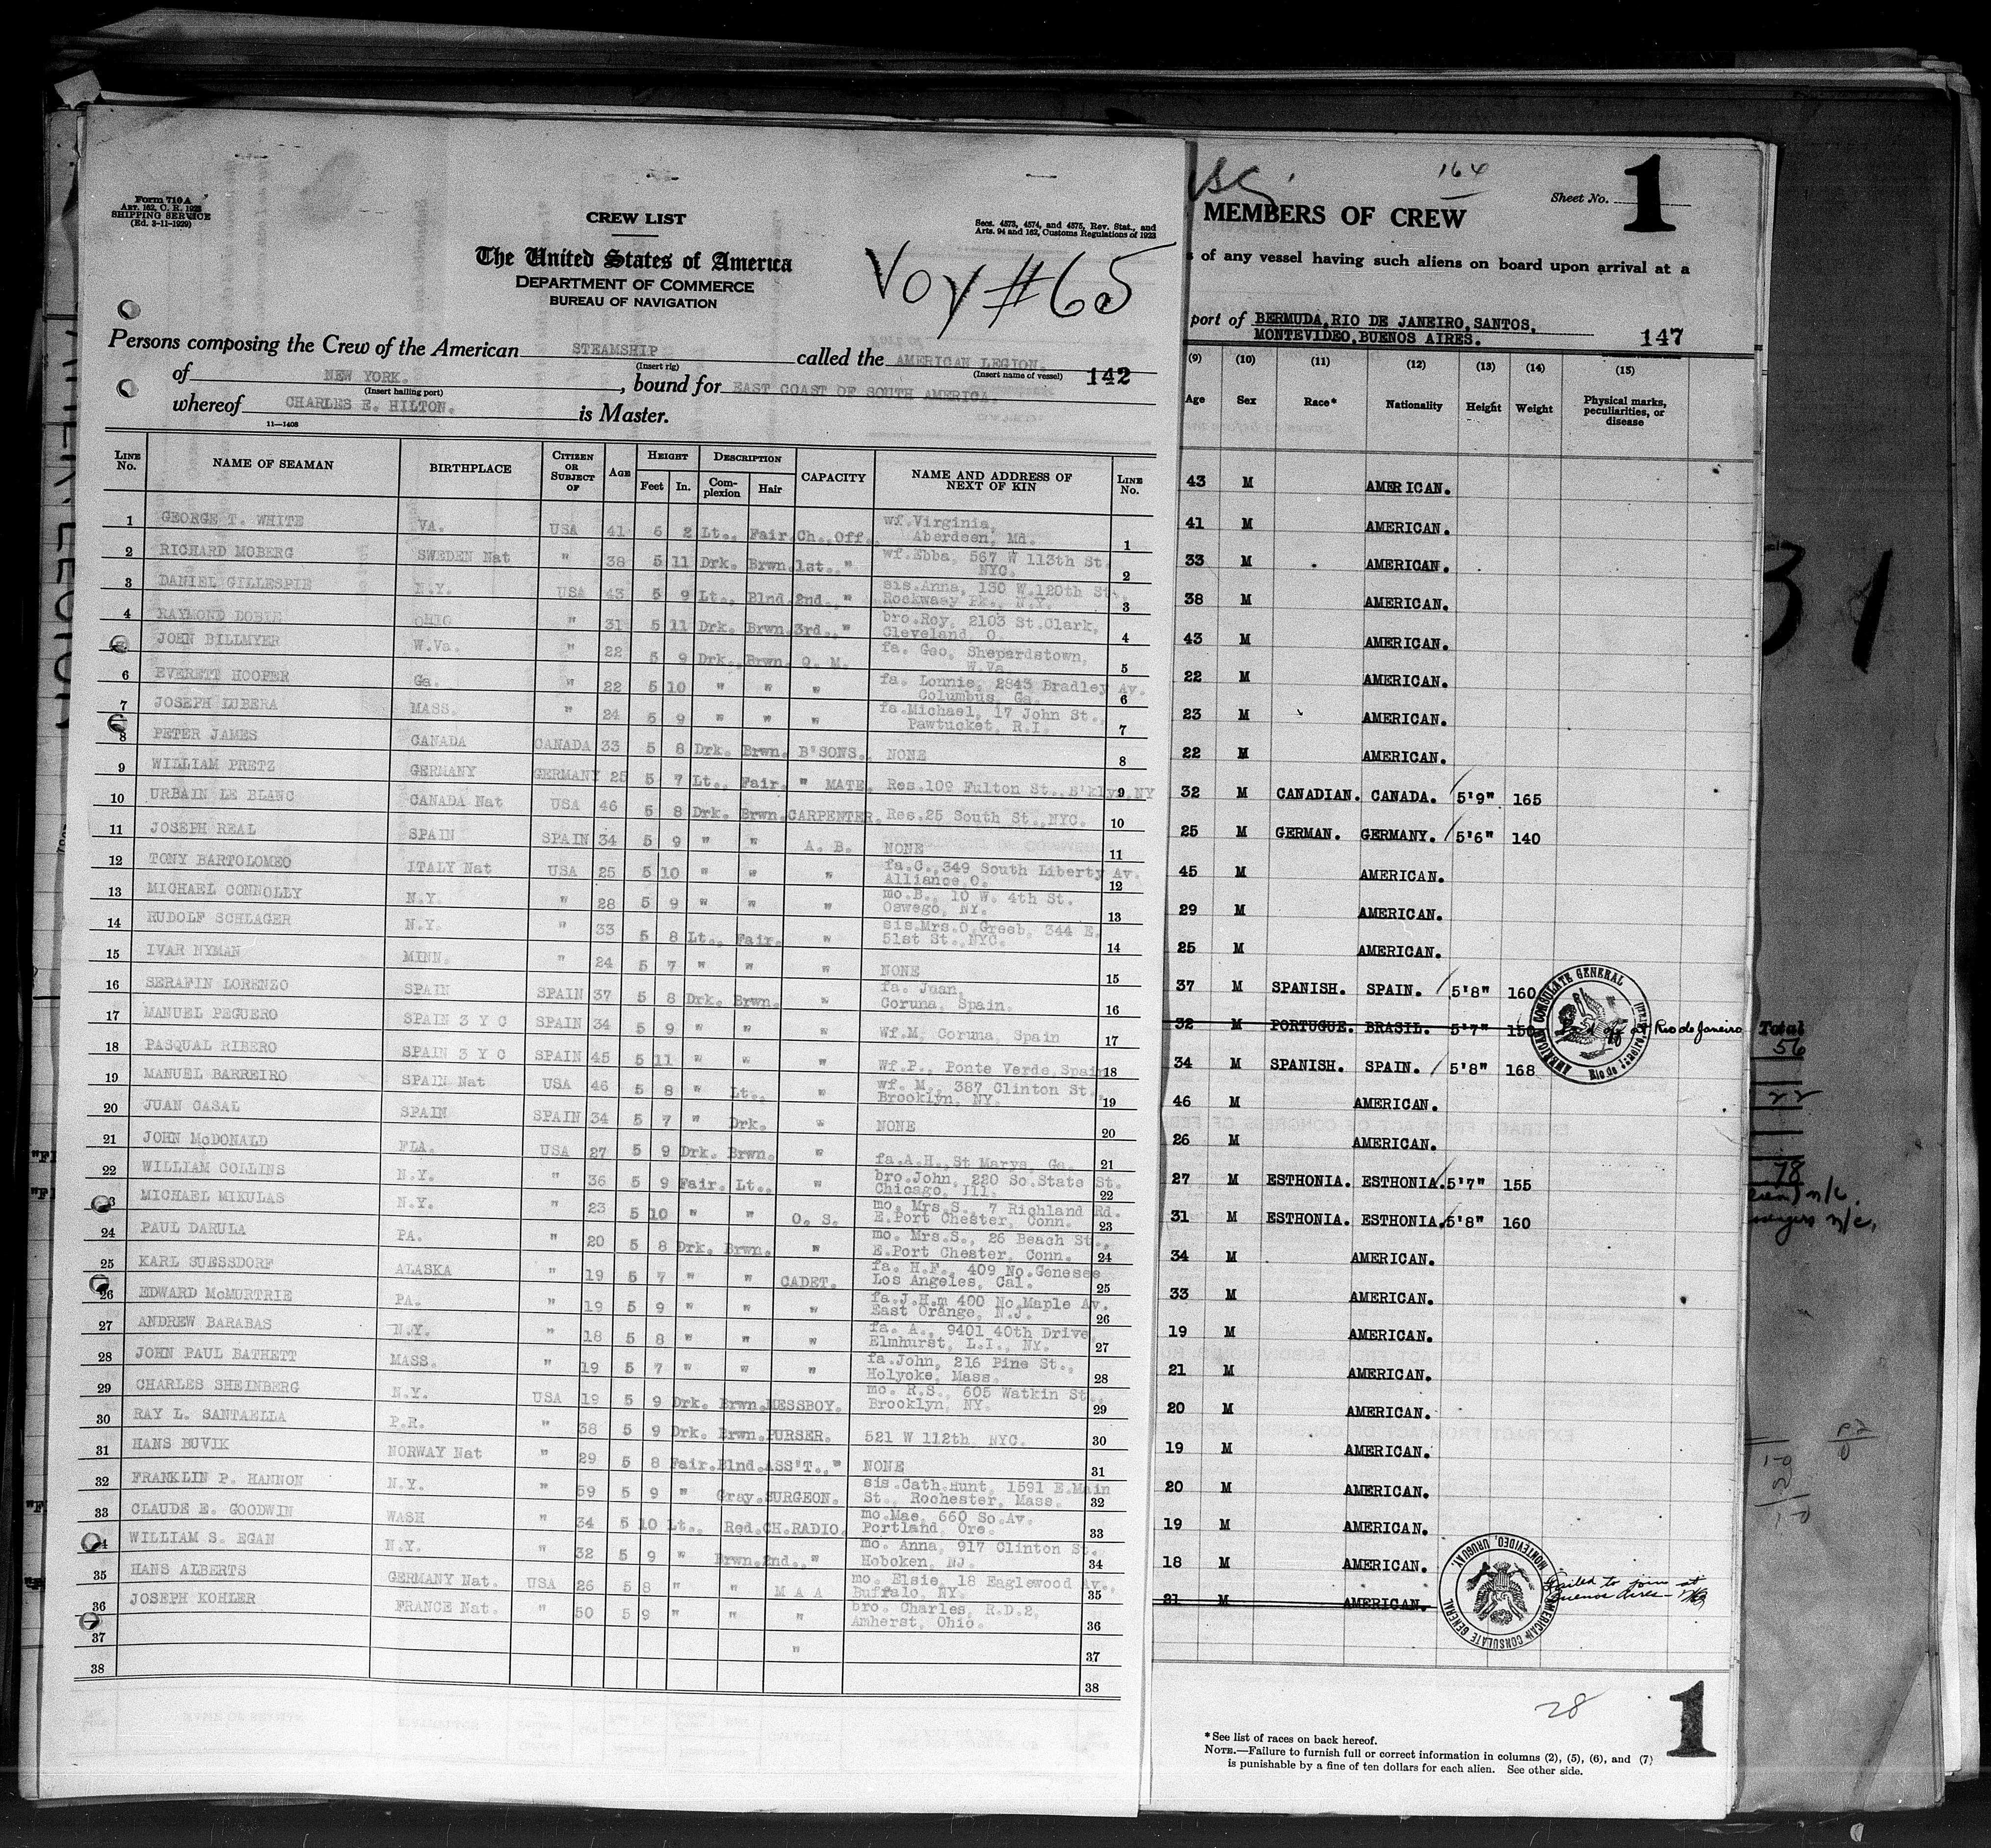 Form 710A
ART. 162, C. R. 1923
SHIPPING SERVICE
(Ed. 3-11-1929)
CREW LIST
Secs. 4573, 4574, and 4575, Rev. Stat., and
Arts. 94 and 162, Customs Regulations of 1923
The United States of America
DEPARTMENT OF COMMERCE
BUREAU OF NAVIGATION
Voy #65
Persons composing the Crew of the American STEAMSHIP called the AMERICAN LEGION.
(Insert rig) (Insert name of vessel) 142
of NEW YORK. , bound for EAST COAST OF SOUTH AMERICA.
(Insert hailing port)
whereof CHARLES E. HILTON. is Master.
11—1408
LINE No. NAME OF SEAMAN BIRTHPLACE CITIZEN OR SUBJECT OF AGE HEIGHT Feet In. DESCRIPTION Complexion Hair CAPACITY NAME AND ADDRESS OF NEXT OF KIN LINE No.
1 GEORGE T. WHITE VA. USA 41 6 2 Lt., Fair. Ch. Off. wf. Virginia, Aberdeen, Md. 1
2 RICHARD MOBERG SWEDEN Nat " 38 5 11 Drk. Brwn. 1st. " wf. Ebba, 567 W 113th St. NYC. 2
3 DANIEL GILLESPIE N.Y. USA 43 5 9 Lt., Blnd. 2nd. " sis. Anna, 130 W. 120th St., Rockwaay Pk., N.Y. 3
4 RAYMOND DOBIE OHIO " 31 5 11 Drk. Brwn. 3rd. " bro. Roy, 2103 St. Clark, Cleveland, O. 4
JOHN BILLMYER W.Va. " 22 5 9 Drk. Brwn. Q. M. fa. Geo, Sheperdstown, W.Va 5
6 EVERETT HOOPER Ga. " 22 5 10 " " " fa. Lonnie, 2843 Bradley Av. Columbus, Ga. 6
7 JOSEPH LUBERA MASS. " 24 5 9 " " " fa. Michael, 17 John St., Pawtucket, R.I. 7
8 PETER JAMES CANADA CANADA 33 5 8 Drk. Brwn. B'SONS. NONE 8
9 WILLIAM PRETZ GERMANY GERMANY 25 5 7 Lt., Fair. " MATE. Res. 109 Fulton St., B'klyn, NY 9
10 URBAIN LE BLANC CANADA Nat USA 46 5 8 Drk. Brwn. CARPENTER. Res. 25 South St., NYC. 10
11 JOSEPH REAL SPAIN SPAIN 34 5 9 " " A. B. NONE 11
12 TONY BARTOLOMEO ITALY Nat USA 25 5 10 " " " fa. C., 349 South Liberty Av. Alliance, O. 12
13 MICHAEL CONNOLLY N.Y. " 28 5 9 " " " mo. B., 10 W. 4th St. Oswego, NY. 13
14 RUDOLF SCHLAGER N.Y. " 33 5 8 Lt., Fair. " sis. Mrs. O. Greeb, 344 E. 51st St., NYC. 14
15 IVAR NYMAN MINN. " 24 5 7 " " " NONE 15
16 SERAFIN LORENZO SPAIN SPAIN 37 5 8 Drk. Brwn. " fa. Juan, Coruna, Spain. 16
17 MANUEL PEGUERO SPAIN 3 Y C SPAIN 34 5 9 " " " Wf. M, Coruna, Spain 17
18 PASQUAL RIBERO SPAIN 3 Y C SPAIN 45 5 11 " " " Wf. P., Ponte Verde, Spain 18
19 MANUEL BARREIRO SPAIN Nat USA 46 5 8 " Lt., " wf. M., 387 Clinton St., Brooklyn, NY. 19
20 JUAN CASAL SPAIN SPAIN 34 5 7 " Drk. " NONE 20
21 JOHN McDONALD FLA. USA 27 5 9 Drk. Brwn. " fa. A.H., St Marys, Ga. 21
22 WILLIAM COLLINS N.Y. " 36 5 9 Fair. Lt., " bro. John, 220 So. State St. Chicago, Ill. 22
3 MICHAEL MIKULAS N.Y. " 23 5 10 " " O. S. mo. Mrs. S., 7 Richland Rd. E. Port Chester, Conn. 23
24 PAUL DARULA PA. " 20 5 8 Drk. Brwn. " mo. Mrs. S., 26 Beach St., E. Port Chester, Conn. 24
25 KARL SUESSDORF ALASKA " 19 5 7 " " CADET. fa. H.F., 409 No. Genesee Los Angeles, Cal. 25
26 EDWARD McMURTRIE PA. " 19 5 9 " " " fa. J.H.m 400 No. Maple Av. East Orange, N.J. 26
27 ANDREW BARABAS N.Y. " 18 5 8 " " " fa. A., 9401 40th Drive, Elmhurst, L.I., NY. 27
28 JOHN PAUL BATHETT MASS. " 19 5 7 " " " fa. John, 216 Pine St., Holyoke, Mass. 28
29 CHARLES SHEINBERG N.Y. USA 19 5 9 Drk. Brwn. MESSBOY. mo. R.S., 605 Watkin St., Brooklyn, NY. 29
30 RAY L. SANTAELLA P.R. " 38 5 9 Drk. Brwn. PURSER. 521 W 112th NYC. 30
31 HANS BUVIK NORWAY Nat " 29 5 8 Fair. Blnd. ASS'T., " NONE 31
32 FRANKLIN P. HANNON N.Y. " 59 5 9 " Gray. SURGEON. sis. Cath. Hunt, 1591 E. Main St., Rochester, Mass. 32
33 CLAUDE E. GOODWIN WASH " 34 5 10 Lt., Red. CH. RADIO. mo. Mae, 660 So. Av. Portland, Ore. 33
4 WILLIAM S. EGAN N.Y. " 32 5 9 " Brwn. 2nd. " mo. Anna, 917 Clinton St. Hoboken, NJ. 34
35 HANS ALBERTS GERMANY Nat. USA 26 5 8 " " M A A mo. Elsie, 18 Eaglewood Av., Buffalo, NY. 35
36 JOSEPH KOHLER FRANCE Nat. " 50 5 9 " " " bro. Charles, R.D.2, Amherst, Ohio. 36
37 " 37
38 38
164
Sheet No. 1
MEMBERS OF CREW
s of any vessel having such aliens on board upon arrival at a
port of BERMUDA, RIO DE JANEIRO, SANTOS,
MONTEVIDEO, BUENOS AIRES. 147
(9) (10) (11) (12) (13) (14) (15)
Age Sex Race* Nationality Height Weight Physical marks, peculiarities, or disease
43 M AMERICAN.
41 M AMERICAN.
33 M AMERICAN.
38 M AMERICAN.
43 M AMERICAN.
22 M AMERICAN.
23 M AMERICAN.
22 M AMERICAN.
32 M CANADIAN. CANADA. 5'9" 165
25 M GERMAN. GERMANY. 5'6" 140
45 M AMERICAN.
29 M AMERICAN.
25 M AMERICAN.
37 M SPANISH. SPAIN. 5'8" 160
32 M PORTUGUE. BRASIL. 5'7" 150 Rio de Janeiro
34 M SPANISH. SPAIN. 5'8" 168
46 M AMERICAN.
26 M AMERICAN.
27 M ESTHONIA. ESTHONIA. 5'7" 155
31 M ESTHONIA. ESTHONIA. 5'8" 160
34 M AMERICAN.
33 M AMERICAN.
19 M AMERICAN.
21 M AMERICAN.
20 M AMERICAN.
19 M AMERICAN.
20 M AMERICAN.
19 M AMERICAN.
18 M AMERICAN.
21 M AMERICAN. Failed to join at
Buenos Aires
AMERICAN CONSULATE GENERAL
Rio de Janeiro, Brazil
AMERICAN CONSULATE GENERAL
MONTEVIDEO, URUGUAY.
28
1
*See list of races on back hereof.
NOTE.—Failure to furnish full or correct information in columns (2), (5), (6), and (7)
is punishable by a fine of ten dollars for each alien. See other side.
31
Total
56
22
78
n/c.
n/c.